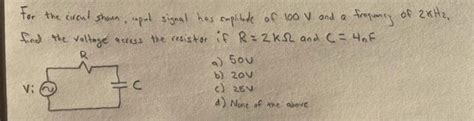 For the circuit shown, input signal has amplitude of 100 V and a frequency of 2KHz,
find the voltage across the resistor if R = 2KΩ and C = 4nF
R
Vi
C
a) 50V
b) 20V
c) 25V
d) None of the above